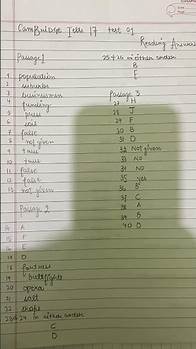 Cambridge Ielts 17 test 01
Reading Answers
Passage 1
1 population
2 suburbs
3 businessmen
4 funding
5 press
6 soil
7 false
8 not given
9 true
10 true
11 false
12 false
13 not given
Passage 2
14 A
15 F
16 E
17 D
18 fortress
19 bullfights
20 opera
21 salt
22 shops
23 & 24 in either order
C
D
25 & 26 in either order
B
E
Passage 3
27 H
28 J
29 F
30 B
31 D
32 Not given
33 NO
34 NO
35 yes
36 B
37 C
38 A
39 B
40 D